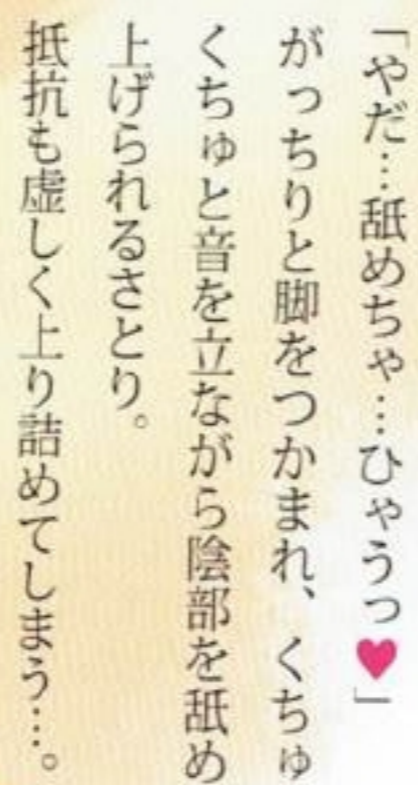 「やだ…舐めちゃ…ひゃうっ♥」
がっちりと脚をつかまれ、くちゅ
くちゅと音を立ながら陰部を舐め
上げられるさとり。
抵抗も虚しく上り詰めてしまう…。